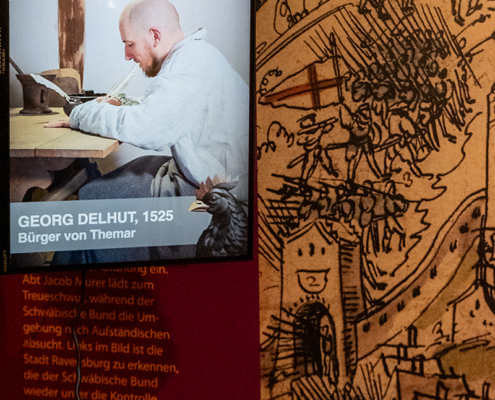 GEORG DELHUT, 1525
Bürger von Themar
ordnung ein.
Abt Jacob Murer lädt zum
Treueschwur, während der
Schwäbische Bund die Um-
gebung nach Aufständischen
absucht. Links im Bild ist die
Stadt Ravensburg zu erkennen,
die der Schwäbische Bund
wieder unter die Kontrolle